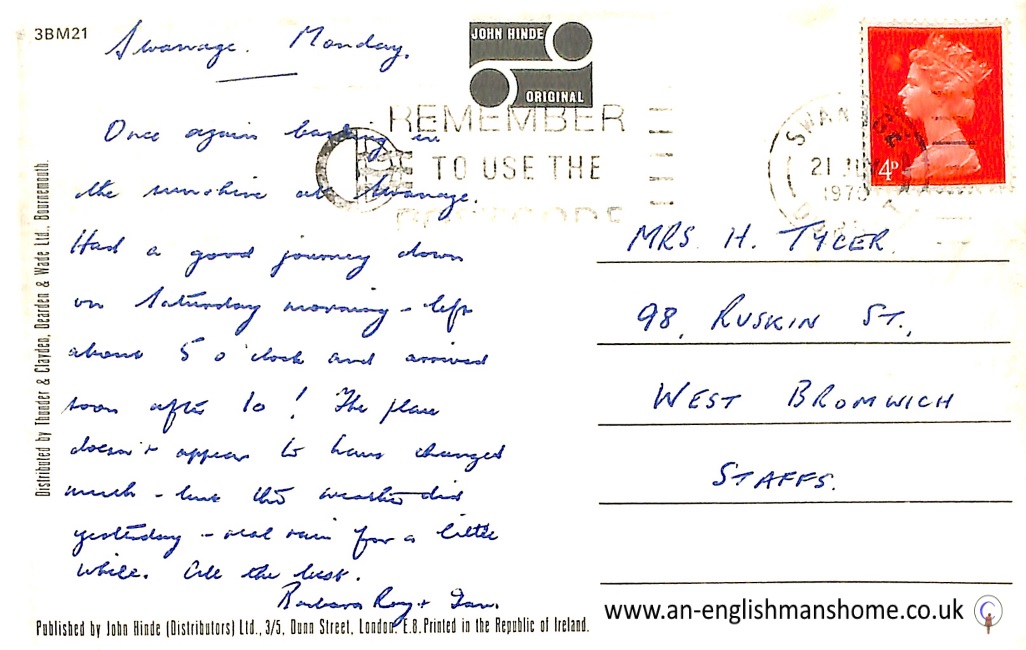 3BM21
Swanage. Monday.
JOHN HINDE
ORIGINAL
REMEMBER
TO USE THE
SWAN
21 JU
1970
4P
Once again basking in
the sunshine at Swanage.
Had a good journey down
on Saturday morning - left
about 5 o'clock and arrived
soon after 10! The place
doesn't appear to have changed
much - but the weather did
yesterday - real rain for a little
while. All the best.
Barbara Roy + Ian.
MRS. H. TYLER.
98, RUSKIN ST.,
WEST BROMWICH
STAFFS.
Distributed by Thunder & Clayden, Dearden & Wade Ltd., Bournemouth.
Published by John Hinde (Distributors) Ltd., 3/5, Dunn Street, London. E.8. Printed in the Republic of Ireland.
www.an-englishmanshome.co.uk